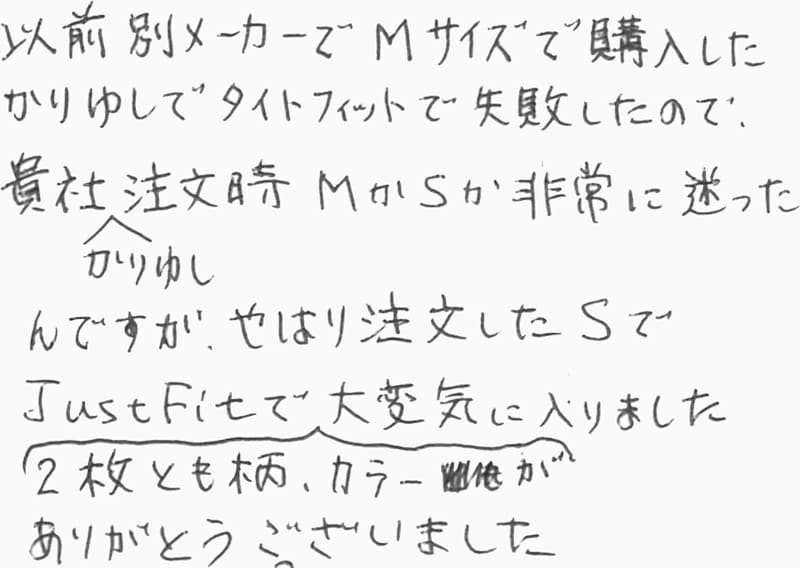 以前別メーカーでMサイズで購入した
かりゆしでタイトフィットで失敗したので、
貴社注文時MかSか非常に迷った
かりゆし
んですが、やはり注文したSで
JustFitで大変気に入りました
2枚とも柄、カラーが
ありがとうございました